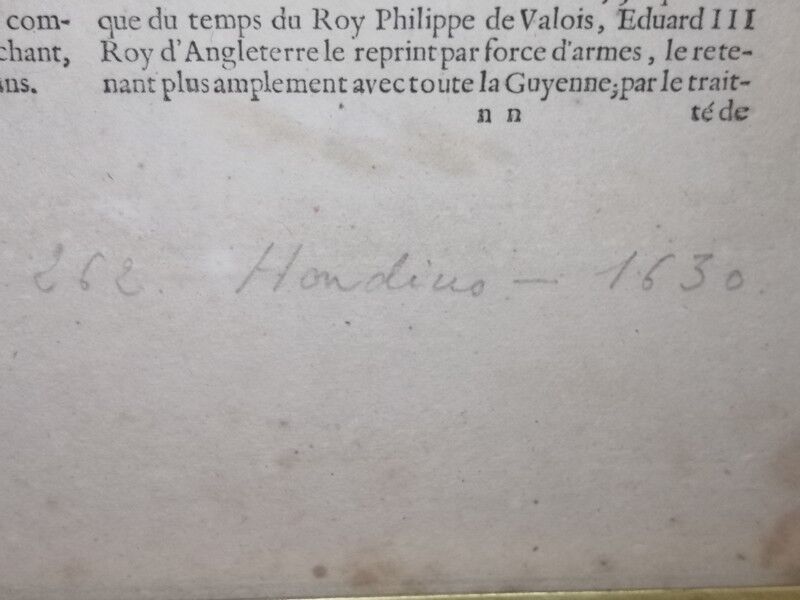 com-
chant,
ns.
que du temps du Roy Philippe de Valois, Eduard III
Roy d'Angleterre le reprint par force d'armes, le rete-
nant plus amplement avec toute la Guyenne; par le trait-
n n
té de
262. Hondius — 1630.